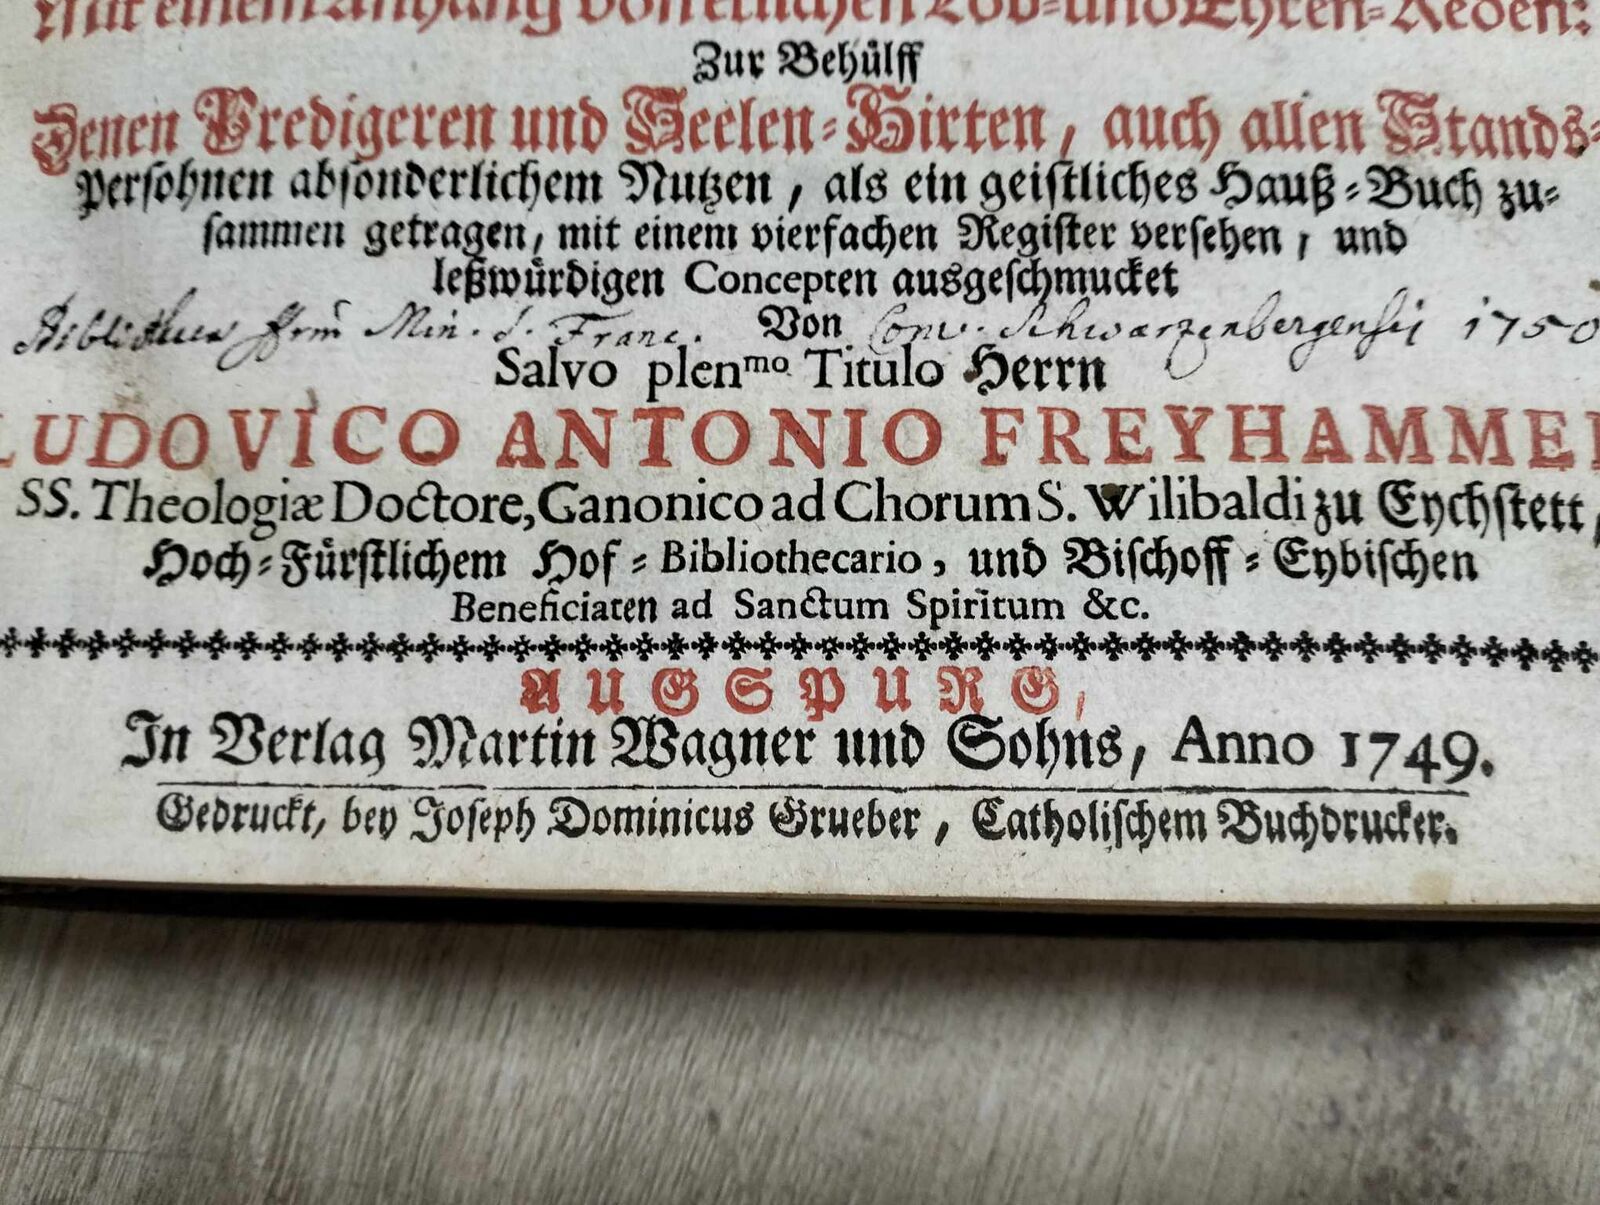 Mit einem Anhang von etlichen Lob- und Ehren-Reden:
Zur Behülff
Denen Predigeren und Seelen-Hirten, auch allen Stands-
Persohnen absonderlichem Nutzen, als ein geistliches Hauß-Buch zu-
sammen getragen, mit einem vierfachen Register versehen, und
leßwürdigen Concepten ausgeschmucket
Von
Bibliothecae Frum Min. S. Franc. Conv. Schwarzenbergensis 1750
Salvo plenmo. Titulo Herrn
LUDOVICO ANTONIO FREYHAMMER
SS. Theologiæ Doctore, Canonico ad Chorum S. Wilibaldi zu Eychstett,
Hoch-Fürstlichem Hof-Bibliothecario, und Bischoff-Eybischen
Beneficiaten ad Sanctum Spiritum &c.
AUGSPURG,
In Verlag Martin Wagner und Sohns, Anno 1749.
Gedruckt, bey Joseph Dominicus Grueber, Catholischem Buchdrucker.